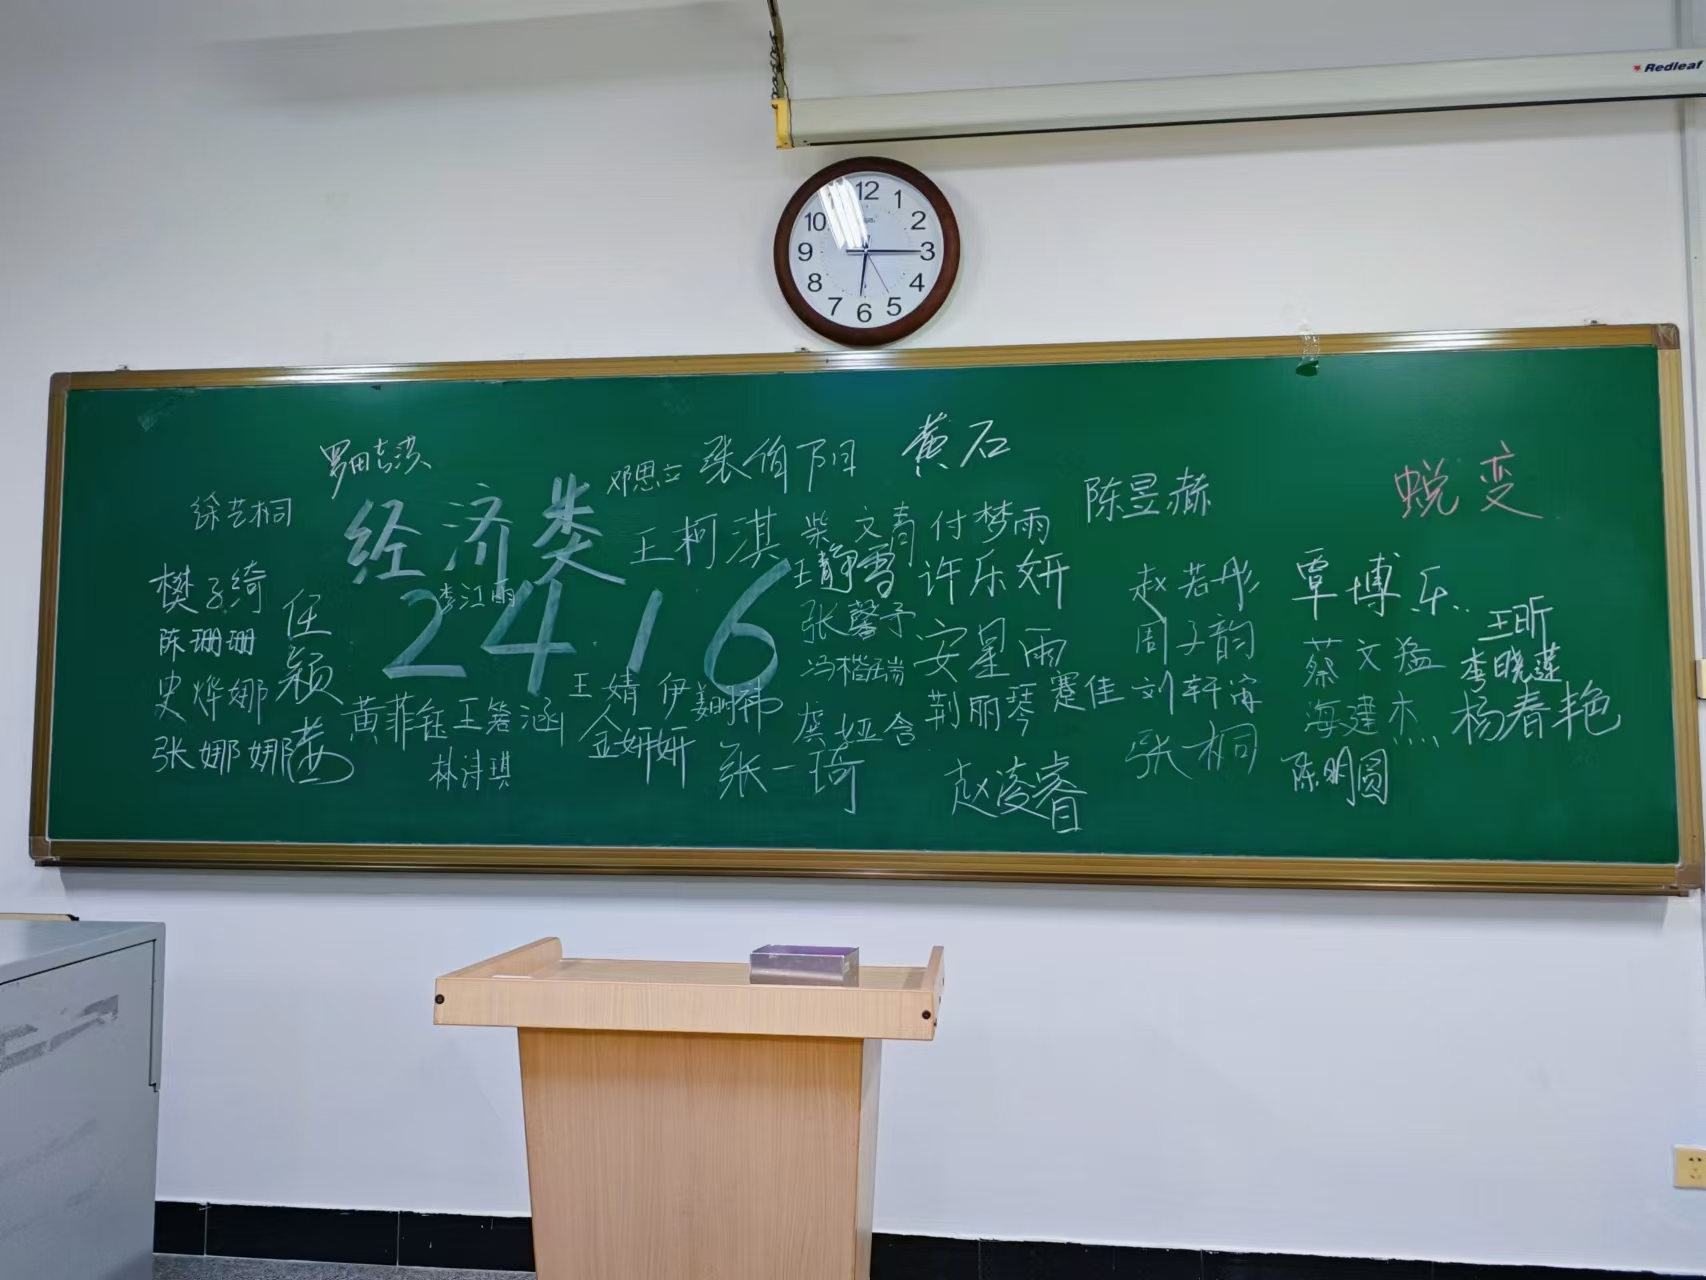 Redleaf
12
1
2
3
4
5
6
7
8
9
10
黄石
张伯阳
邓思立
徐艺桐
陈昱赫
蜕变
经济类
王柯淇
柴文青
付梦雨
樊子绮
任颖茜
李江雨
2416
王静雪
许乐妍
赵若彤
覃博乐
陈珊珊
张馨予
安星雨
周子韵
蔡文猛
王昕
史烨娜
冯楷瑞
李晓莲
黄菲钰
王箬涵
王婧伊
荆丽琴
蹇佳
刘轩
海建杰
杨春艳
张娜娜
金妍妍
龚娅含
张桐
林诗琪
张一琦
赵凌睿
陈明圆